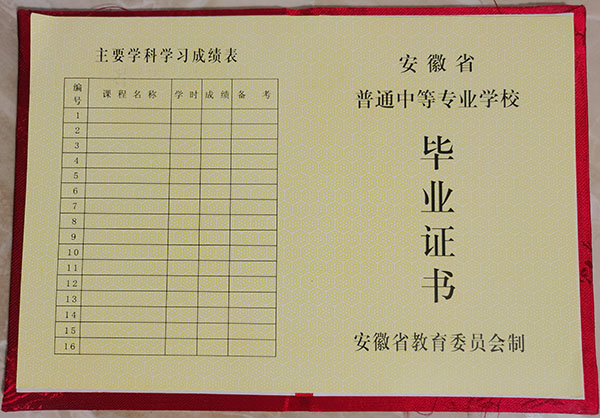 主要学科学习成绩表
编号 课程名称 学时 成绩 备考
1
2
3
4
5
6
7
8
9
10
11
12
13
14
15
16
安徽省
普通中等专业学校
毕业证书
安徽省教育委员会制